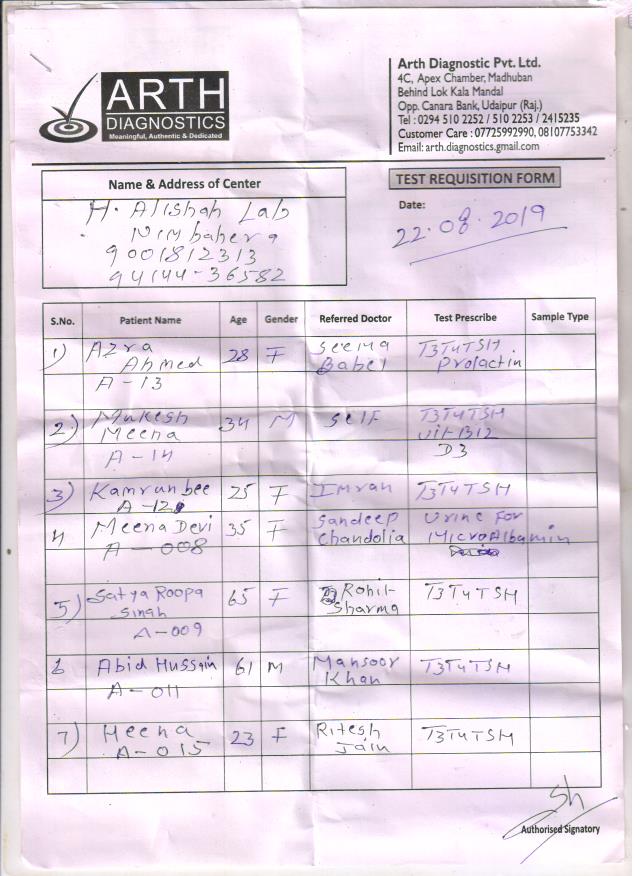 ARTH
DIAGNOSTICS
Meaningful, Authentic & Dedicated
Arth Diagnostic Pvt. Ltd.
4C, Apex Chamber, Madhuban
Behind Lok Kala Mandal
Opp. Canara Bank, Udaipur (Raj.)
Tel : 0294 510 2252 / 510 2253 / 2415235
Customer Care : 07725992990, 08107753342
Email: arth.diagnostics.gmail.com
Name & Address of Center
H. Alishah Lab
Nimbahera
9001812313
94144-36582
TEST REQUISITION FORM
Date:
22.08.2019
S.No. Patient Name Age Gender Referred Doctor Test Prescribe Sample Type
1) Azra Ahmed A-13 28 F Seema Babel T3T4TSH Prolactin
2) Mukesh Meena A-14 34 M Self T3T4TSH Vit B12 D3
3) Kamrunbee A-12 25 F Imran T3T4TSH
4 Meena Devi A-008 35 F Sandeep Chandolia Urine For MicroAlbumin
5) Satya Roopa Singh A-009 65 F Rohit Sharma T3T4TSH
6 Abid Hussain A-011 61 M Mansoor Khan T3T4TSH
7) Heena A-015 23 F Ritesh Jain T3T4TSH
Sh
Authorised Signatory